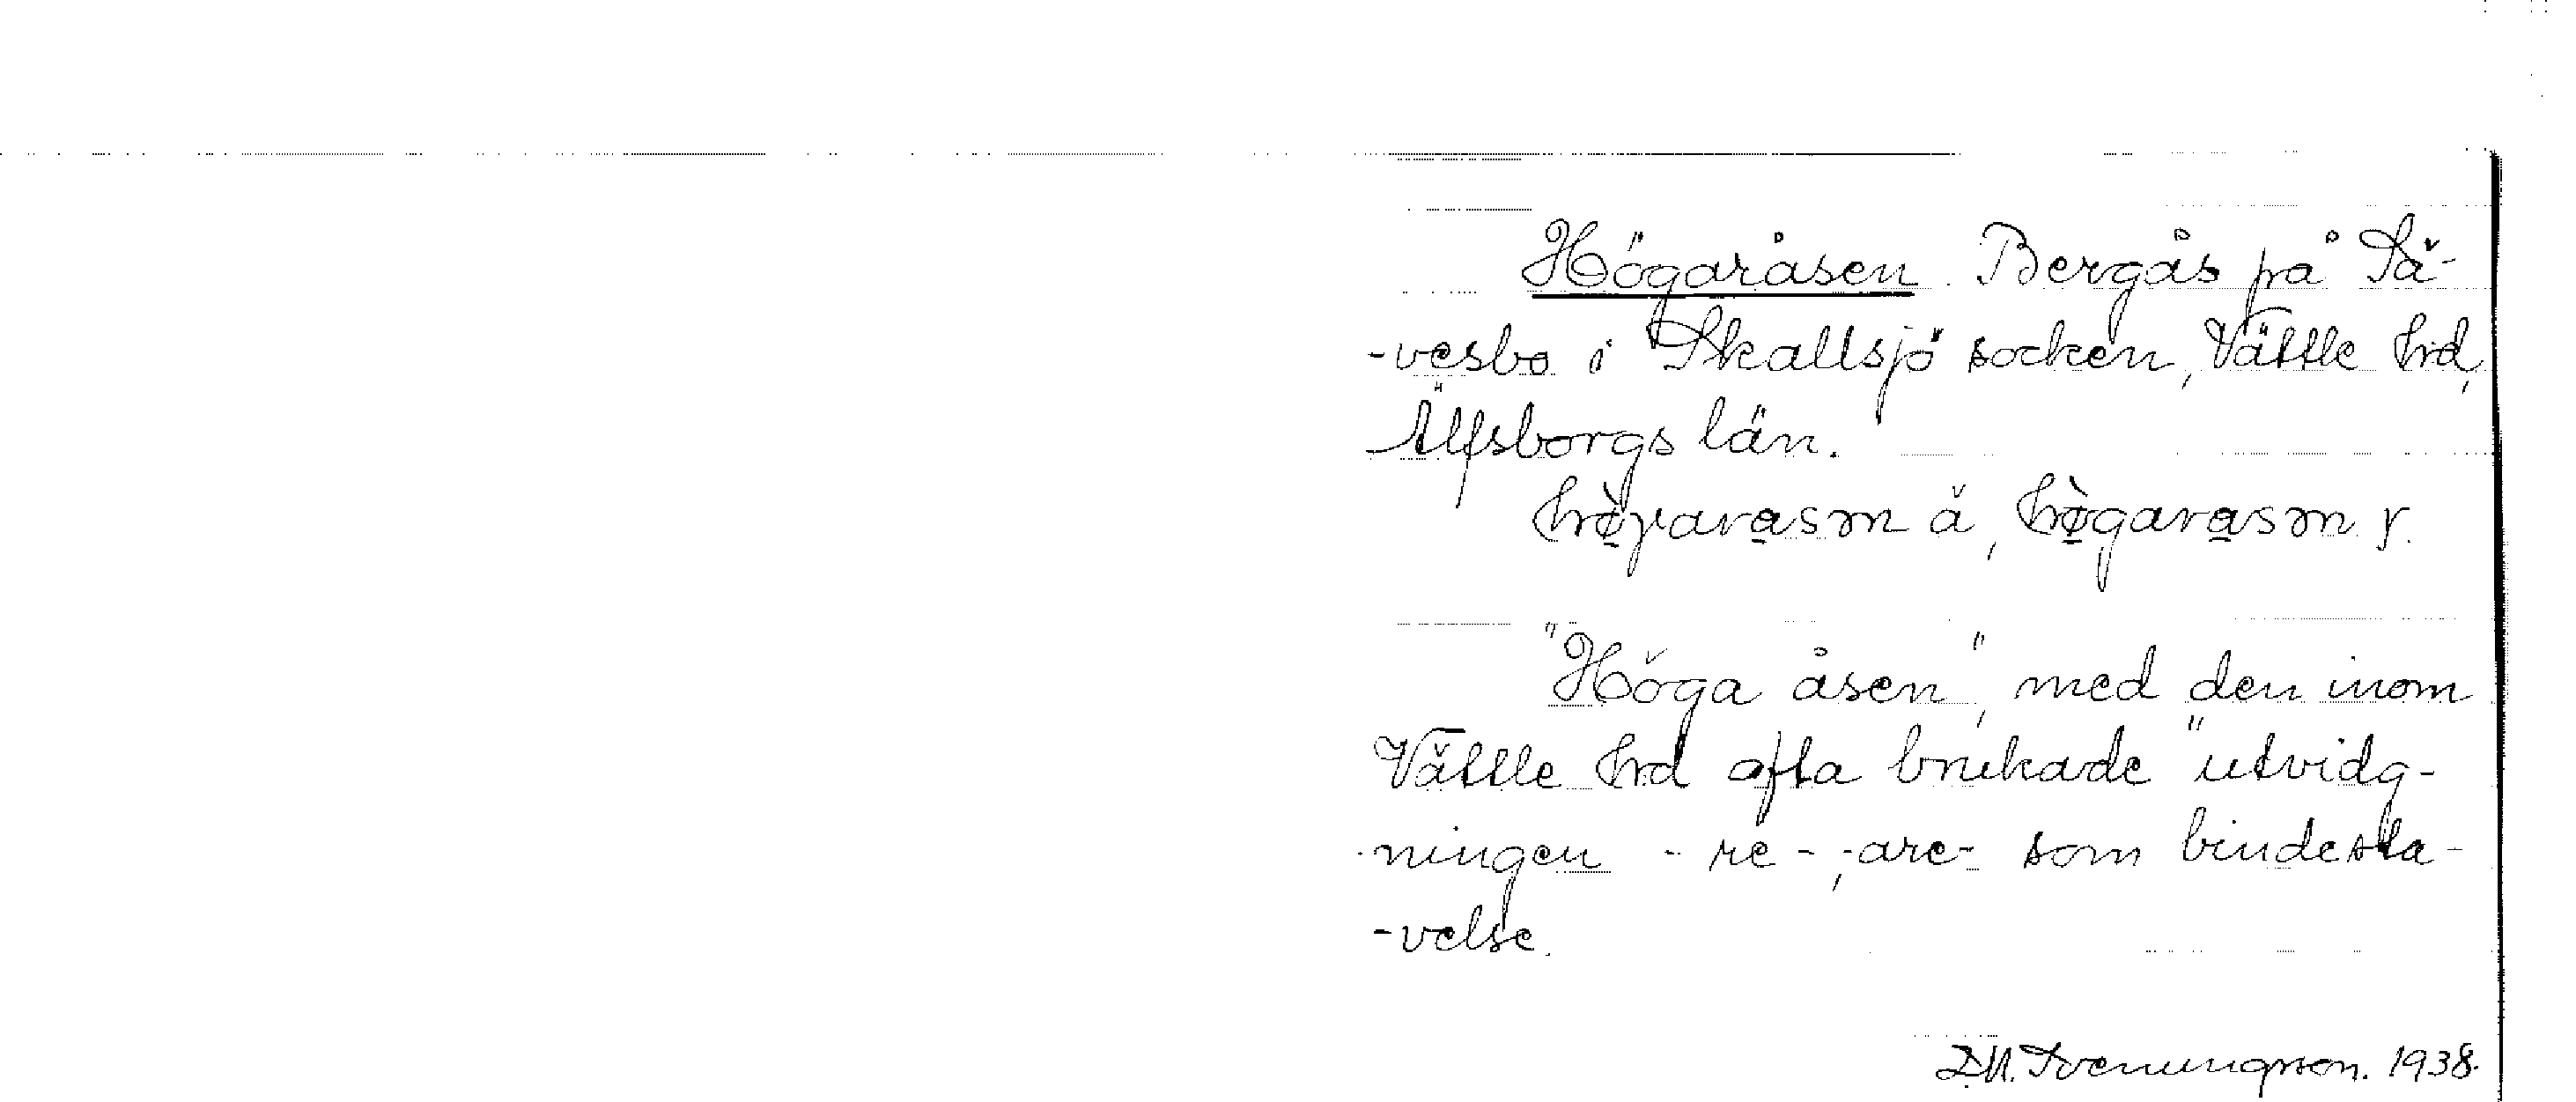 Högaråsen. Bergås på Sä-
-vesbo i Skallsjö socken, Vättle hrd,
Älfsborgs län.
hø̱̀γara̱sən ä, hø̱̀gara̱sən y.
"Höga åsen", med den inom
Vättle hrd ofta brukade "utvidg-
-ningen -re-, -are- som bindesta-
-velse.
D.N. Svenungsson. 1938.